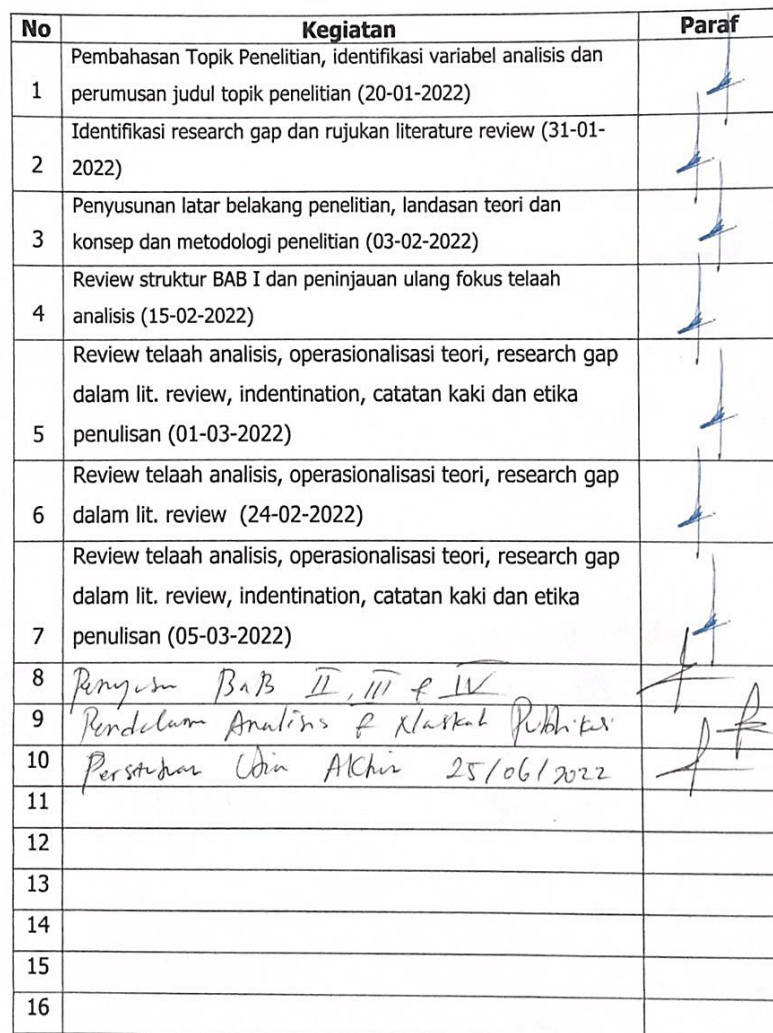 No Kegiatan Paraf
Pembahasan Topik Penelitian, identifikasi variabel analisis dan
1 perumusan judul topik penelitian (20-01-2022)
Identifikasi research gap dan rujukan literature review (31-01-
2 2022)
Penyusunan latar belakang penelitian, landasan teori dan
3 konsep dan metodologi penelitian (03-02-2022)
Review struktur BAB I dan peninjauan ulang fokus telaah
4 analisis (15-02-2022)
Review telaah analisis, operasionalisasi teori, research gap
dalam lit. review, indentination, catatan kaki dan etika
5 penulisan (01-03-2022)
Review telaah analisis, operasionalisasi teori, research gap
6 dalam lit. review (24-02-2022)
Review telaah analisis, operasionalisasi teori, research gap
dalam lit. review, indentination, catatan kaki dan etika
7 penulisan (05-03-2022)
8 BAB II, III & IV
9 Analisis & Naskah Publikasi
10 Akhir 25/06/2022
11
12
13
14
15
16